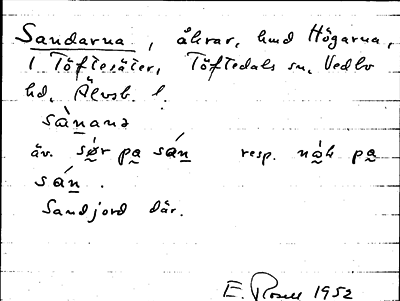 Sandarna, åkrar, hmd Högarna,
1 Töftesäter, Töftedals sn, Vedbo
hd, Älvsb. l.
sànanə
äv. sør pa sán resp. nǫ́ḷ pa
sán.
Sandjord där.
E. Rosell 1952